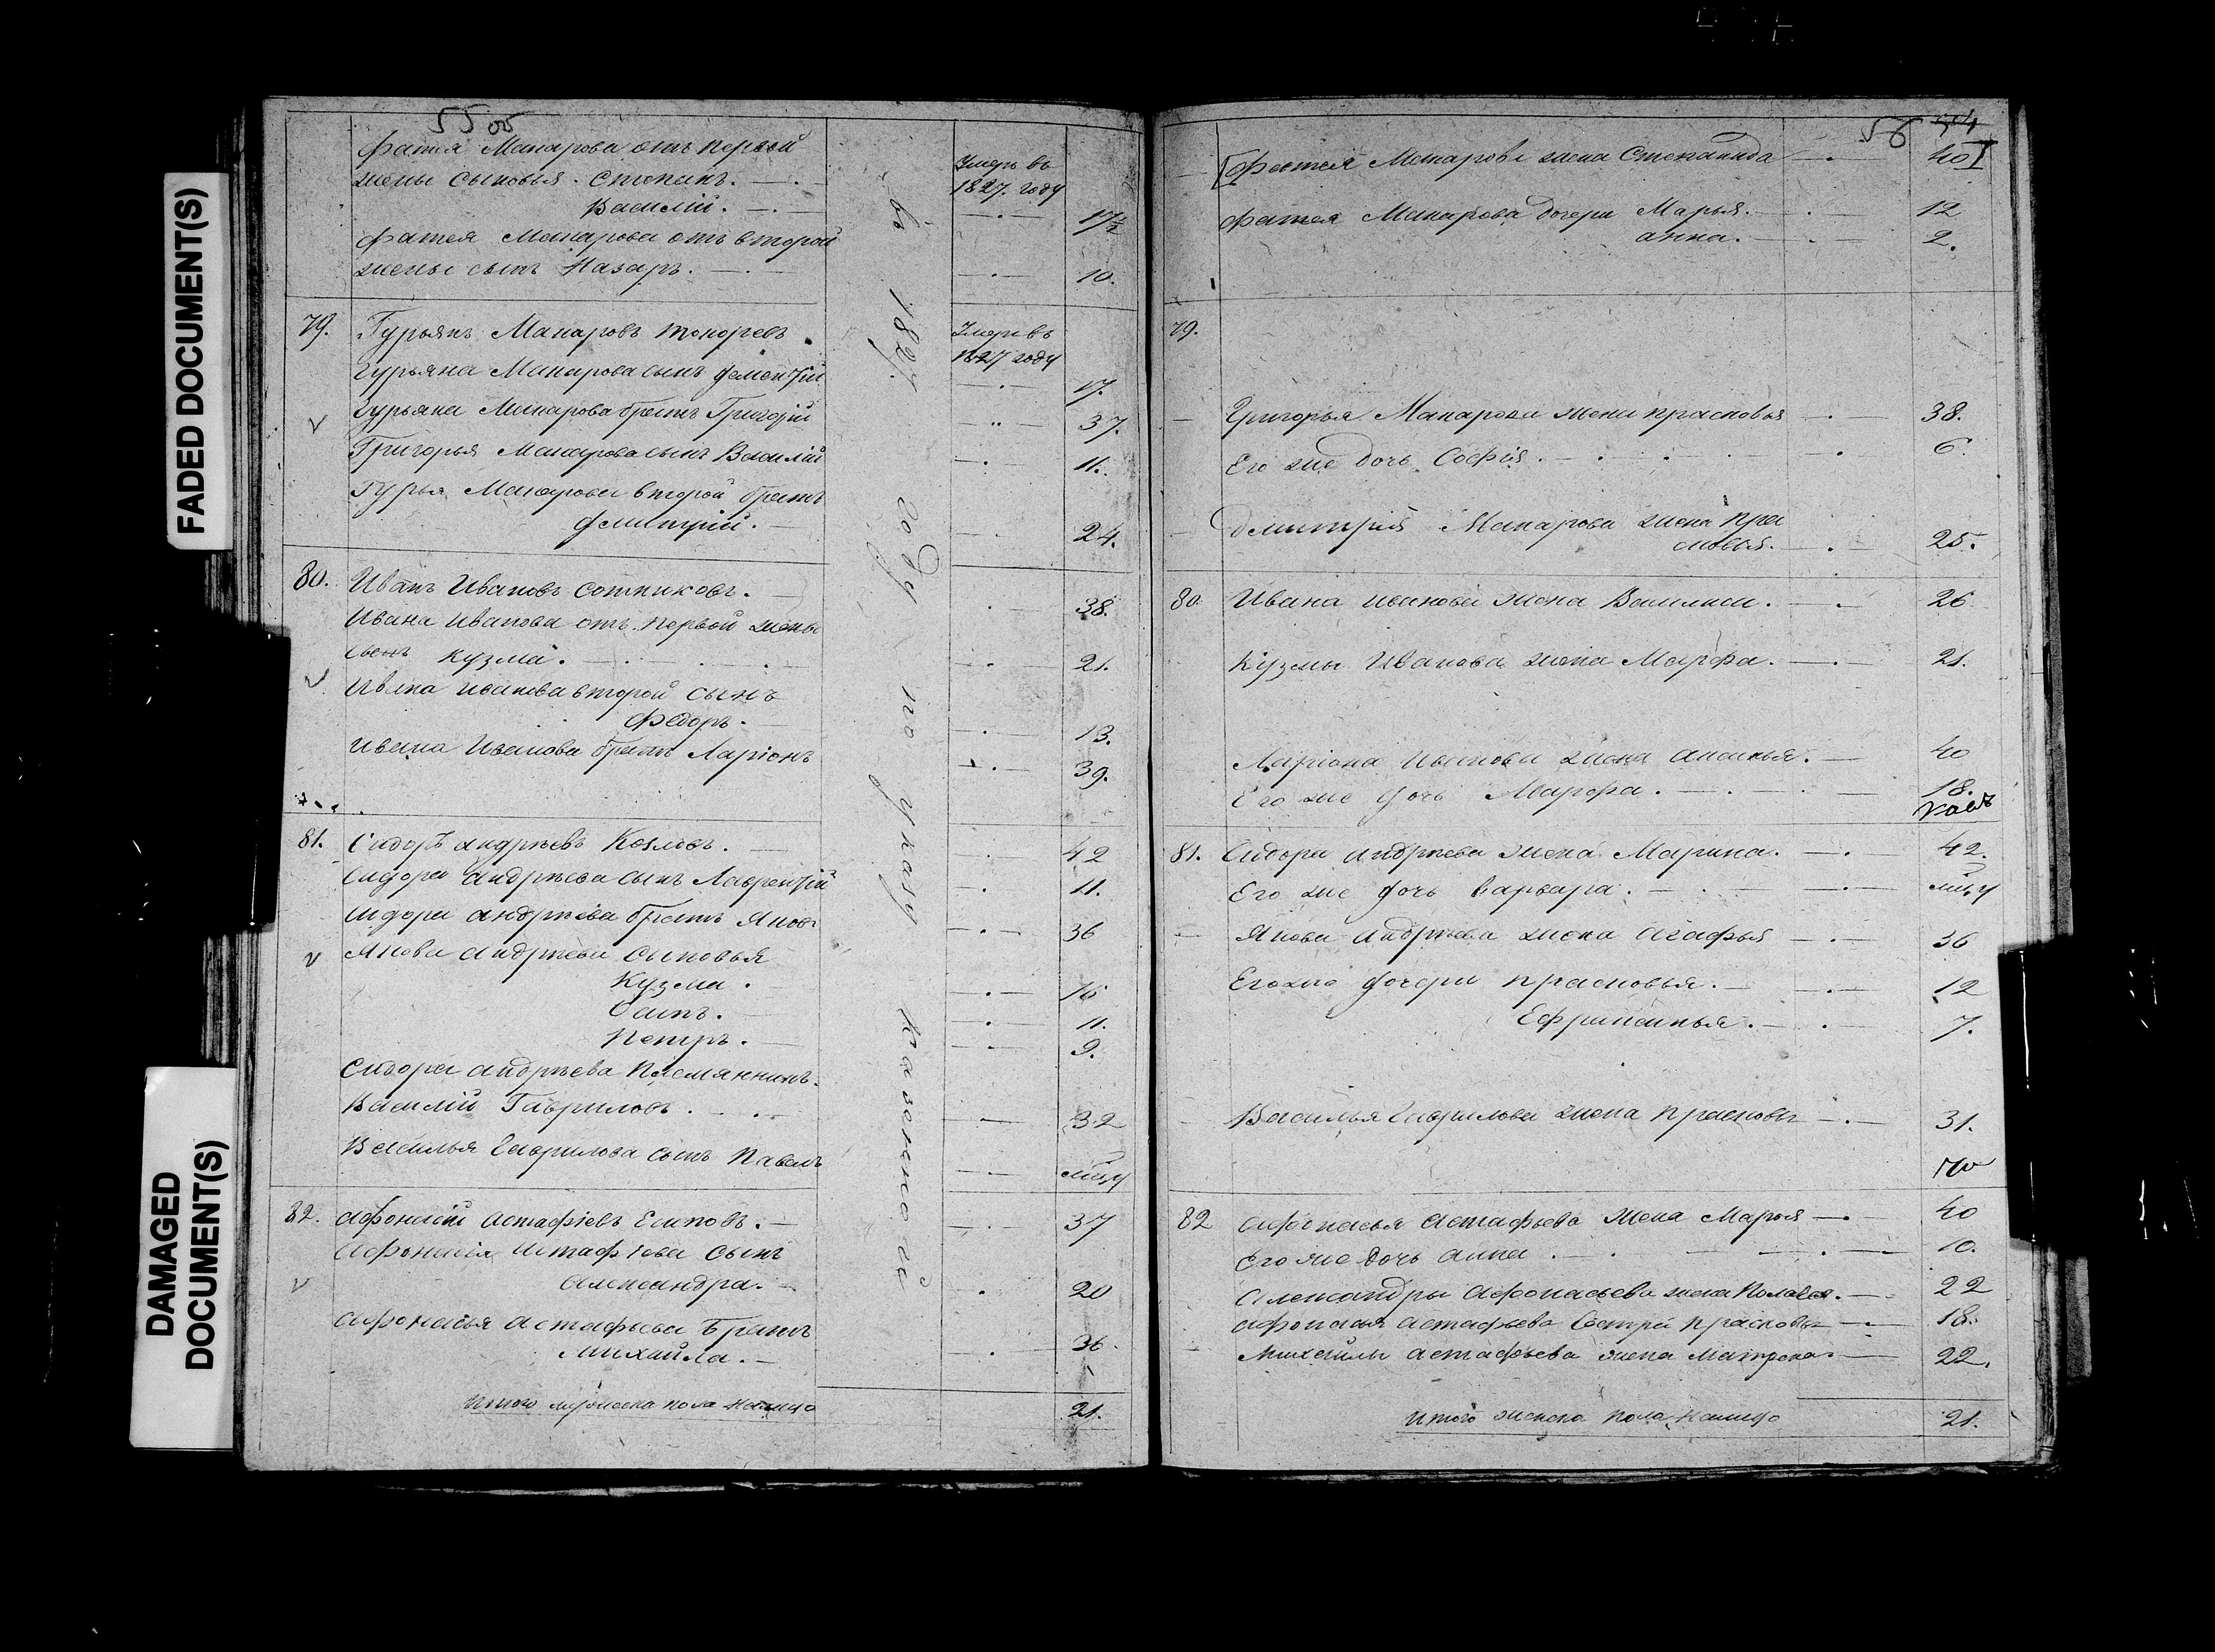 55 об
Фатея Макарова отъ первой
жены сыновья Степанъ.
Умеръ въ
1827. году
Василій.
17½
Фатея Макарова отъ второй
жены сынъ Назаръ.
10.
79. Гурьянъ Макаровъ
Умеръ въ
1827 году
Гурьяна Макарова сынъ
17.
Гурьяна Макарова братъ Григорій
37.
Григорья Макарова сынъ Василій
11.
Макарова второй братъ
Дмитрій.
24.
80. Иванъ Ивановъ Сотниковъ.
38.
Ивана Иванова отъ первой жены
сынъ Кузма.
21.
Ивана Иванова второй сынъ
Федоръ.
13.
Ивана Иванова братъ Ларіонъ
39.
81. Сидоръ Андреевъ Козловъ.
42
Сидора Андреева сынъ Лаврентій
11.
Сидора Андреева братъ Яковъ
36
Якова Андреева сыновья
Кузма.
16
11.
Петръ.
9.
Сидора Андреева племянникъ
Василій Гавриловъ.
32
Василья Гаврилова сынъ Павелъ
82. Афонасій Астафіевъ Есиповъ.
37
Афонасія Астафіева сынъ
Александра.
20
Афонасья Астафьева братъ
Михайла.
36.
Итого мужеска пола налицо
21.
въ 1827 году по указу казенной
56 54
Фатея Макарова жена Степанида
40
Фатея Макарова дочери Марья.
12
Анна.
2.
79.
Григорья Макарова жена Прасковья
38.
Его же дочь Софія.
6.
Дмитрія Макарова жена Пра
сковья.
25.
80 Ивана Иванова жена Василиса.
26
Кузмы Иванова жена Марфа.
21.
Ларіона Иванова жена Ананья.
40
Его же дочь Марфа.
18.
81. Сидора Андреева жена Марина.
42.
Его же дочь Варвара.
Якова Андреева жена Агафья
36
Его же дочери Прасковья.
12
Ефросинья.
7.
Василья Гаврилова жена Прасковья
31.
82 Афонасья Астафьева жена Марья
40
Его же дочь Анна.
10.
Александры Афонасьева жена Пелагея.
22
Афонасья Астафьева сестра Прасковья
18.
Михайлы Астафьева жена Матрена.
22.
Итого женска пола налицо
21.
FADED DOCUMENT(S)
DAMAGED
DOCUMENT(S)